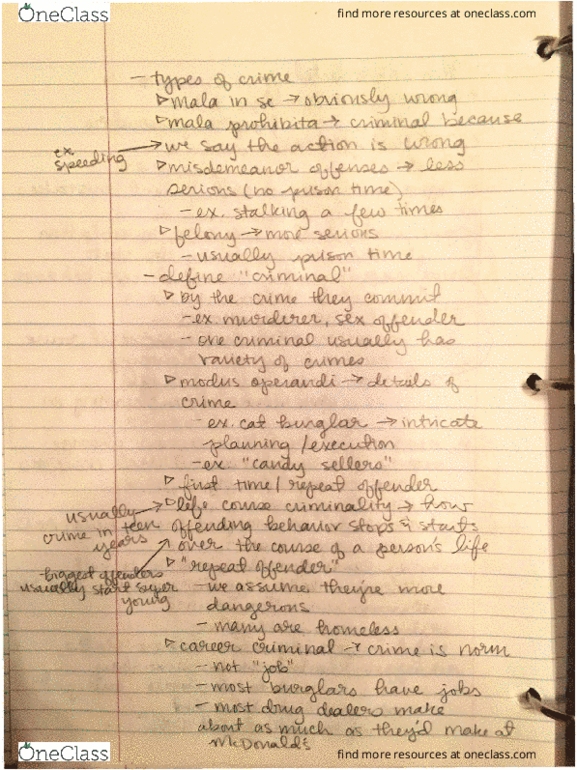 OneClass
find more resources at oneclass.com
- types of crime
▹ mala in se → obviously wrong
▹ mala prohibita → criminal because
ex speeding → we say the action is wrong
▹ misdemeanor offenses → less
serious (no prison time)
- ex. stalking a few times
▹ felony → more serious
- usually prison time
- define "criminal"
▹ by the crime they commit
- ex murderer, sex offender
- one criminal usually has
variety of crimes
▹ modus operandi → details of
crime
- ex. cat burglar → intricate
planning / execution
- ex "candy sellers"
▹ first time / repeat offender
▹ life course criminality → how
offending behavior stops & starts
over the course of a person's life
usually →
crime in teen
years
- biggest offenders
usually start super
young
▹ "repeat offender"
- we assume they're more
dangerous
- many are homeless
▹ career criminal → crime is norm
- not "job"
- most burglars have jobs
- most drug dealers make
about as much as they'd make at
McDonald's
OneClass
find more resources at oneclass.com